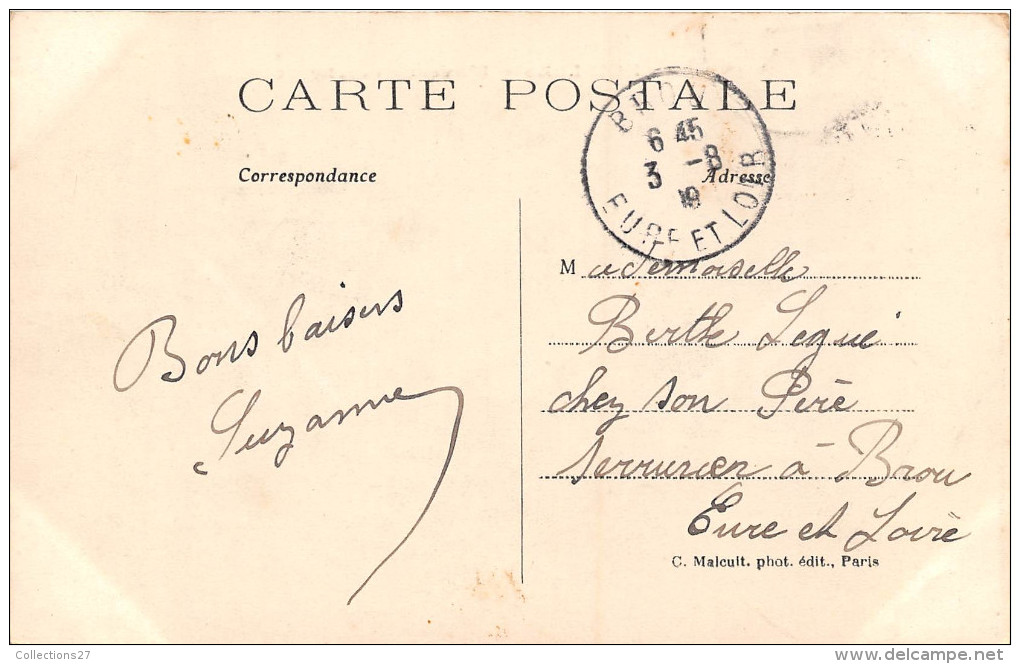 CARTE POSTALE
BROU
6 45
3 -8
EURE ET LOIR
Correspondance
Adresse
Bons baisers
Suzanne
Mademoiselle
Berthe Legué
chez son Père
serrurier à Brou
Eure et Loire
C. Malcuit. phot. édit., Paris
Collections27
www.delcampe.net